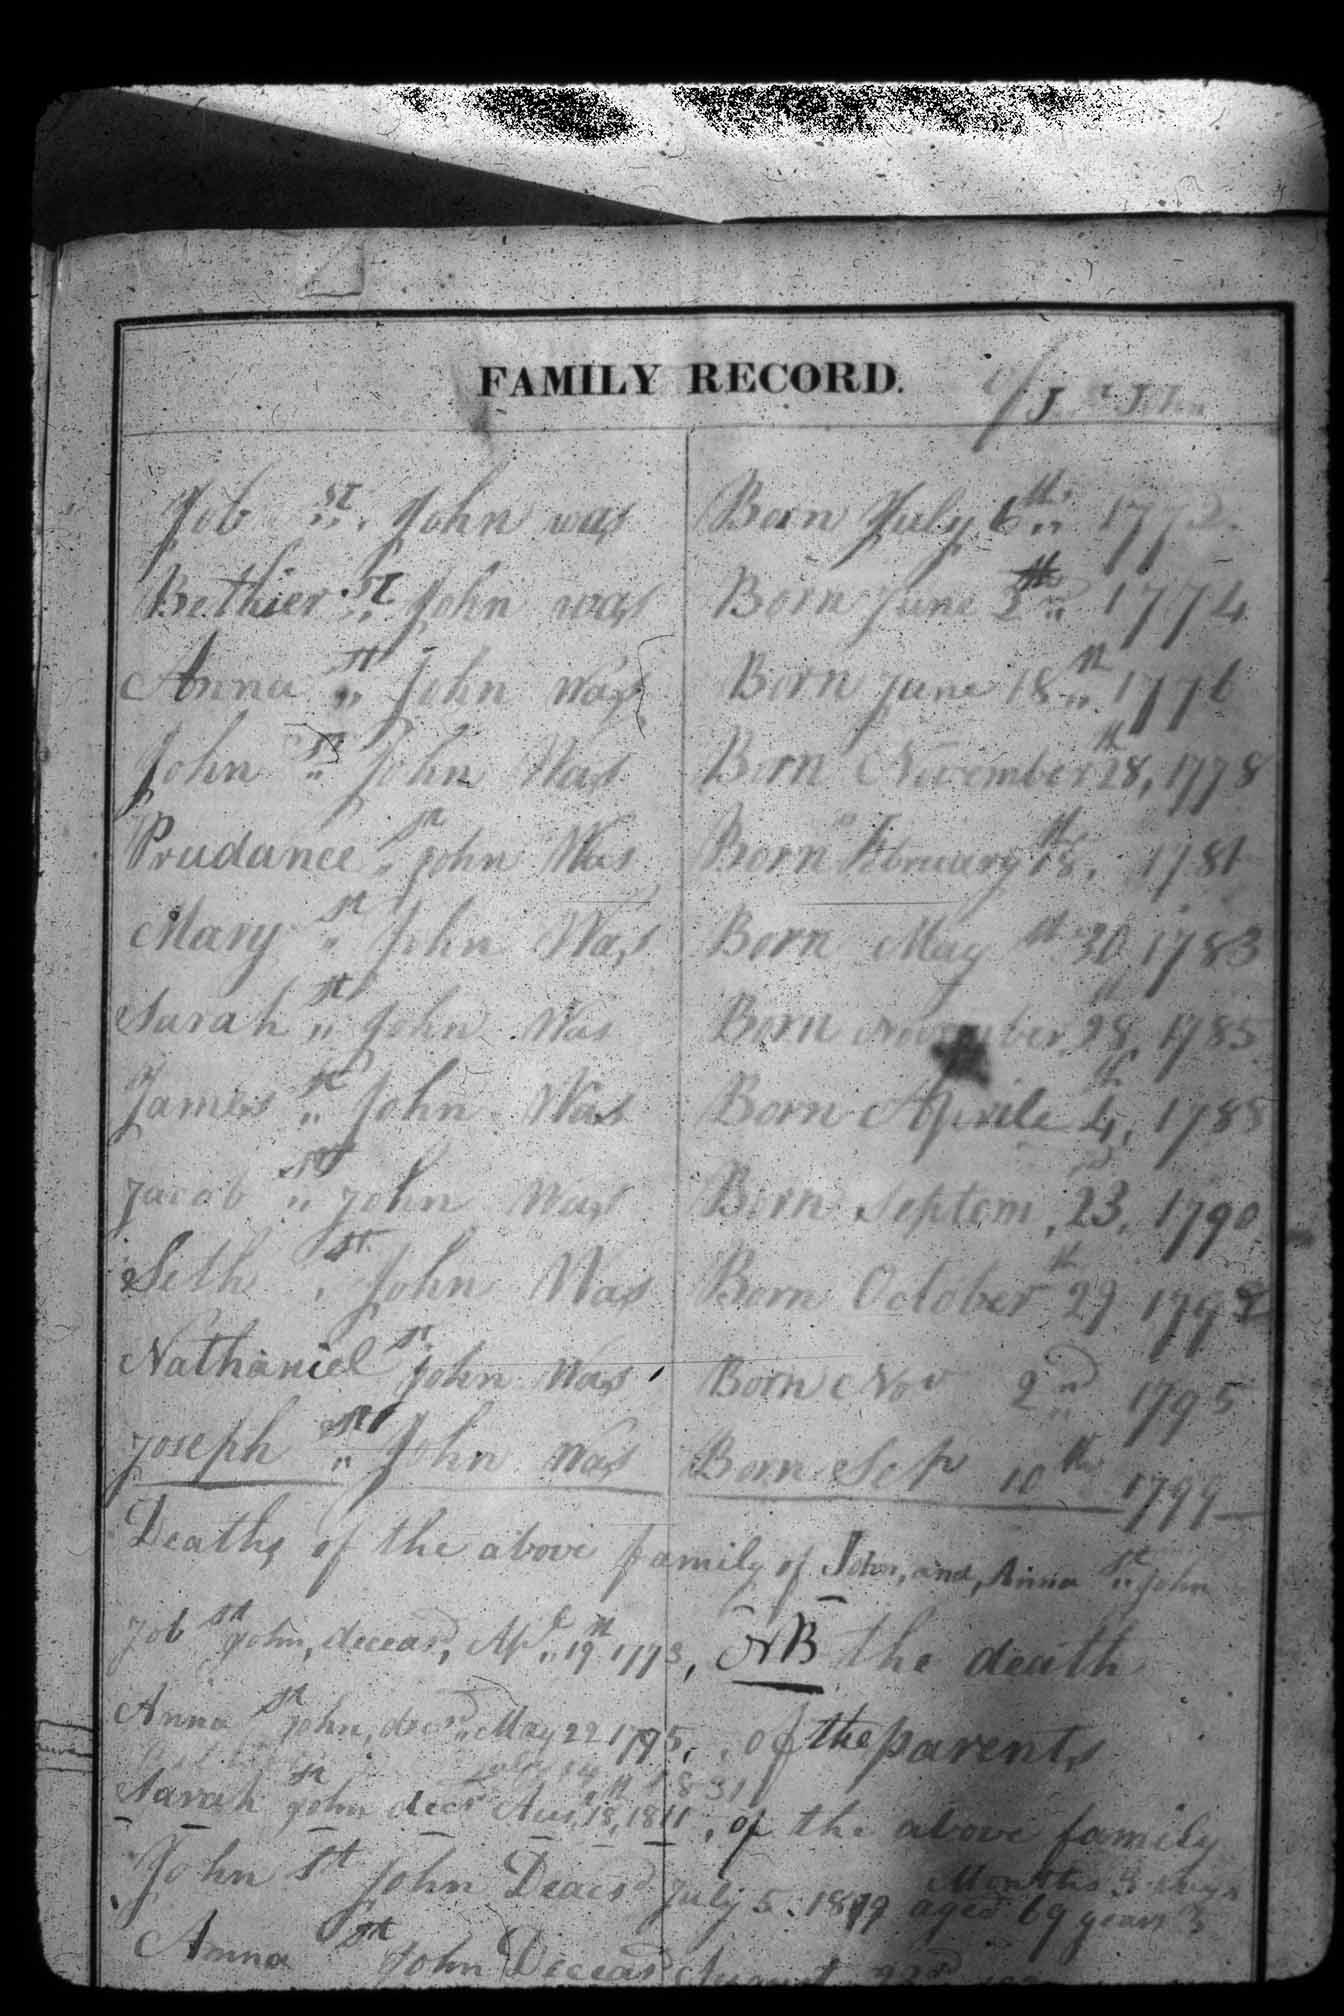 FAMILY RECORD. of J St John
Job St John was Born July 6th 1772
Bethier St John was Born June 2nd 1774
Anna St John was Born June 18th 1776
John St John Was Born November 28th, 1778
Prudance St John Was Born February 18th, 1781
Mary St John Was Born May 30 1783
Sarah St John Was Born November 28 1785
James St John Was Born Aprile 4th, 1788
Jacob St John Was Born Septem 23, 1790
Seth St John Was Born October 29th
Nathaniel St John Was Born Nov 2nd 1795
Joseph St John Was Born Sep 10th 1799
Deaths of the above family of John, and, Anna St John
Job St John, deceasd, Apl 19th 1773, NB the death
Anna St John, decsd May 22 1795, of the parents
1831
Sarah St John decsd Aug 18, 1811, of the above family
Months 3 days
John St John Deacsd July 5 aged 69 years 3
Anna St John Deceasd August 22d